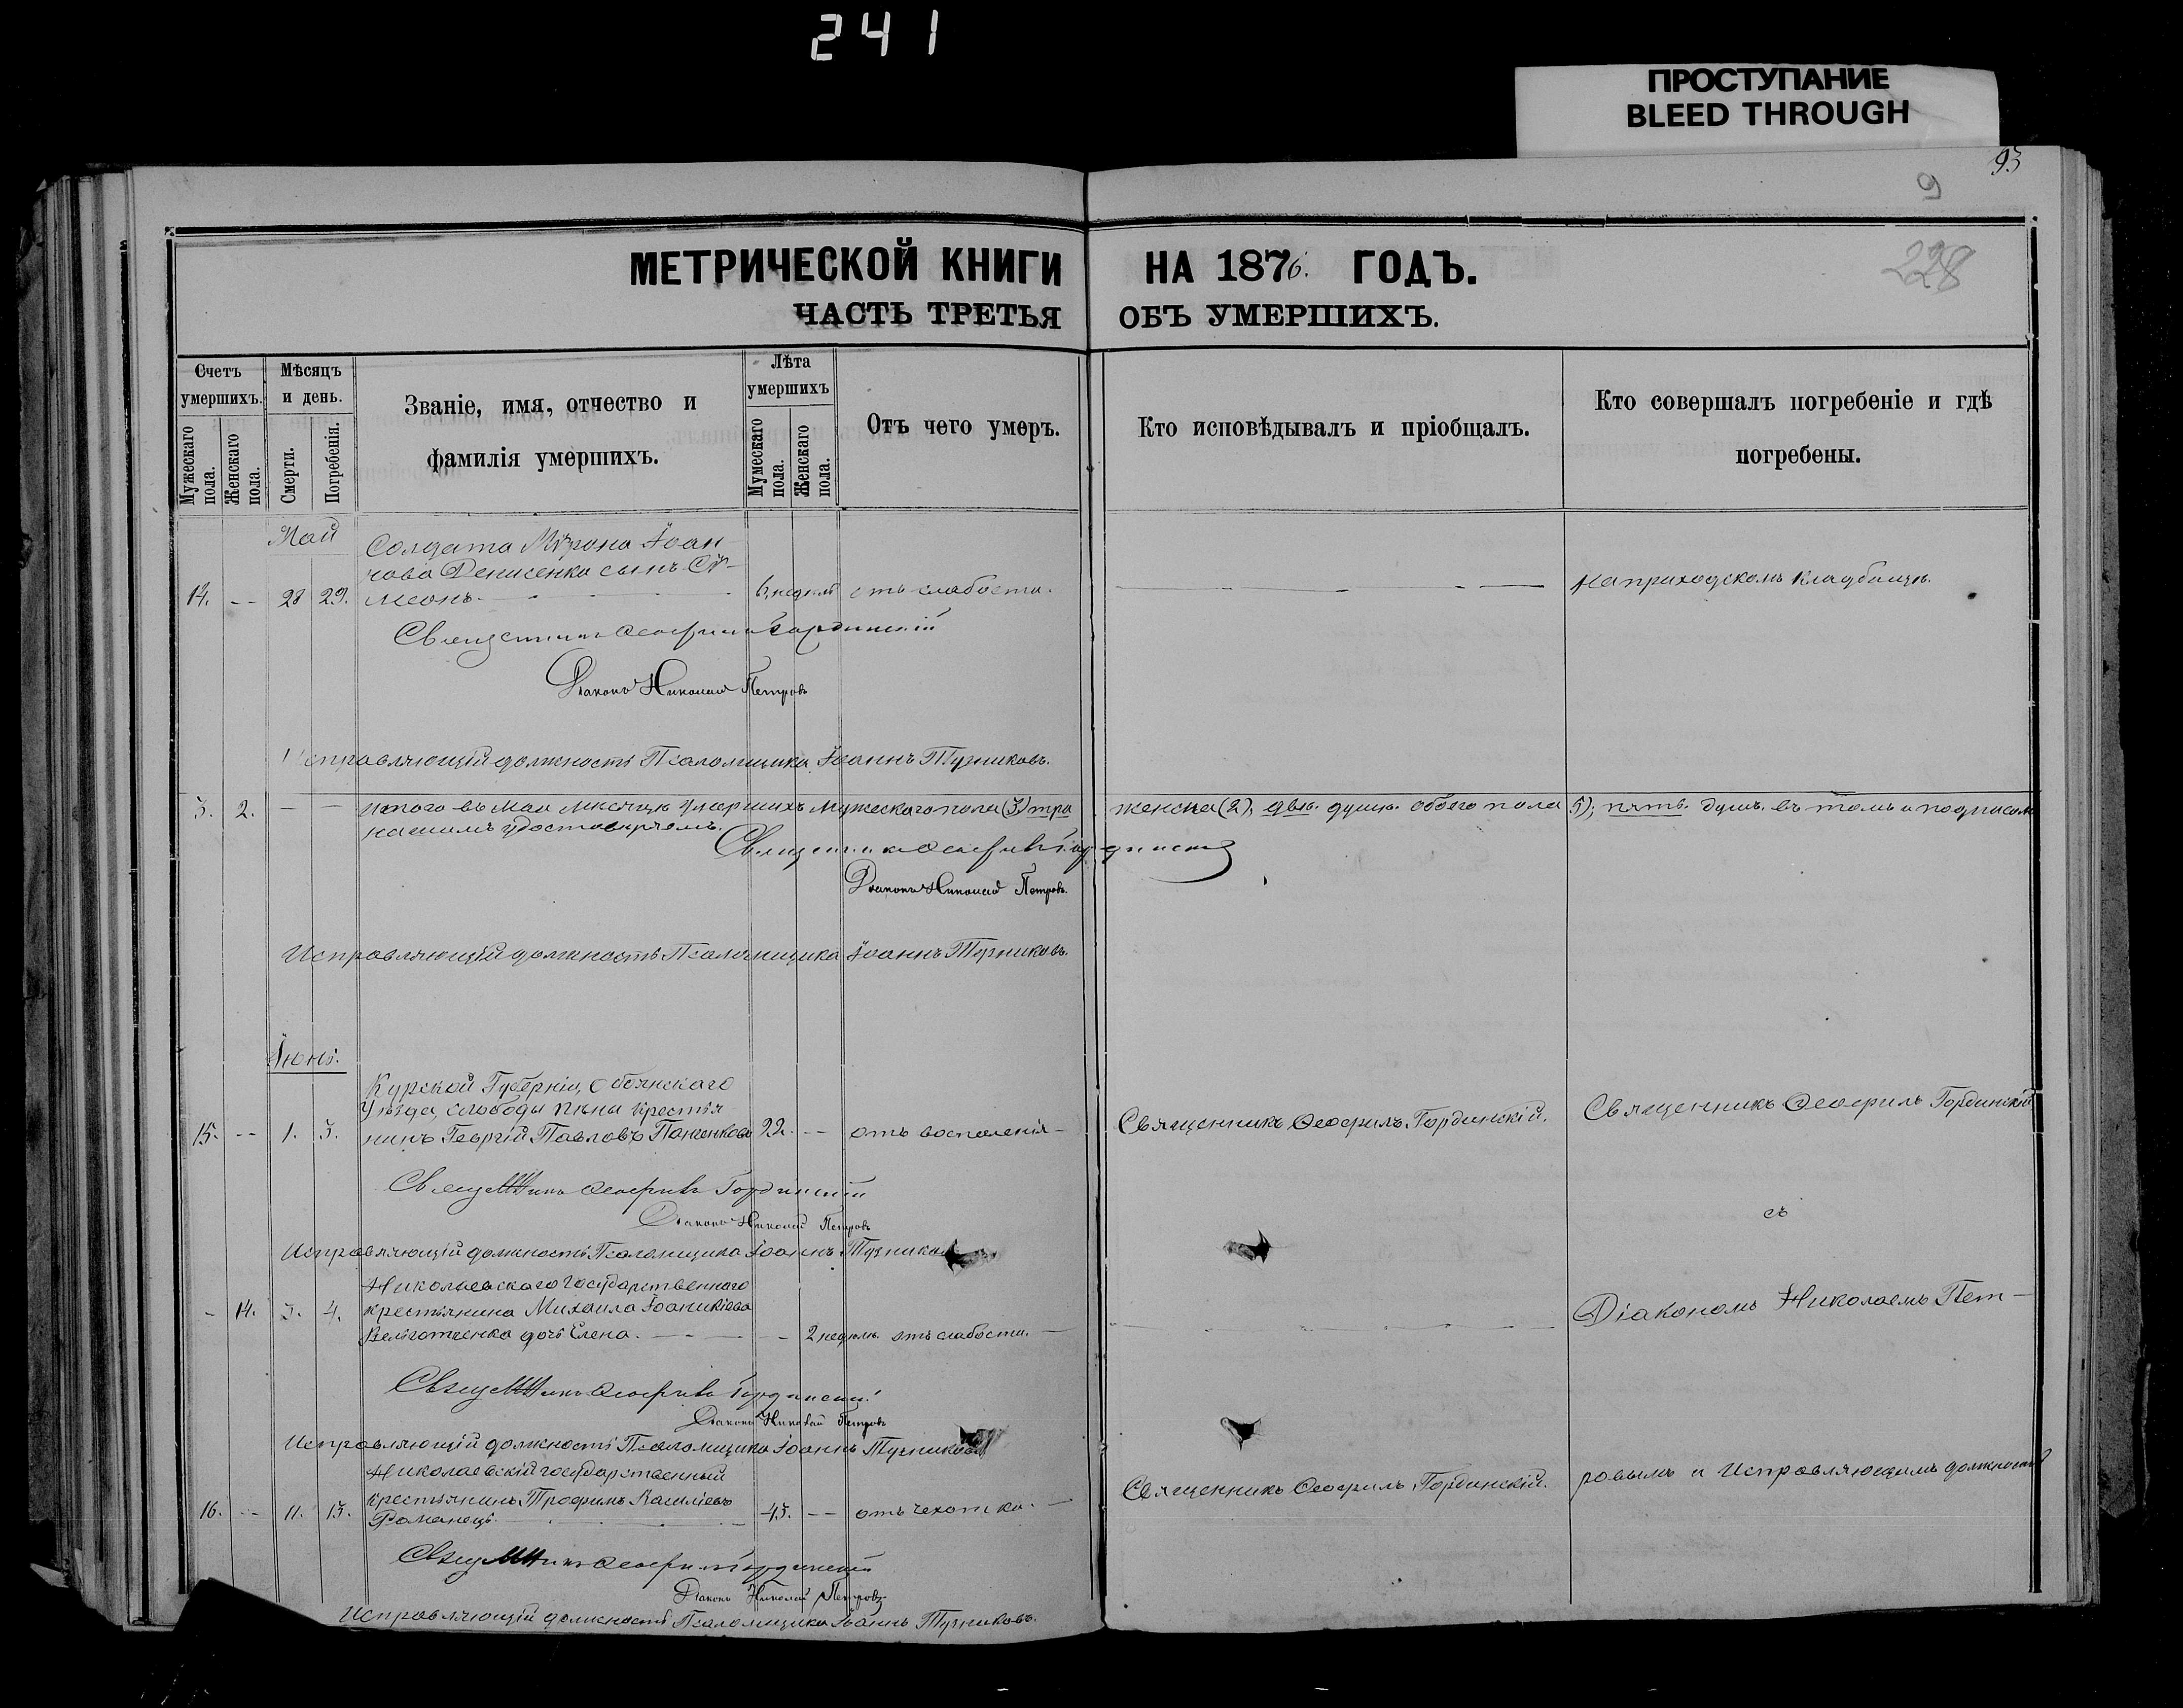 241
ПРОСТУПАНИЕ
BLEED THROUGH
93
9
228
МЕТРИЧЕСКОЙ КНИГИ НА 1876. ГОДЪ.
ЧАСТЬ ТРЕТЬЯ ОБЪ УМЕРШИХЪ.
Счетъ умершихъ.
Мужескаго пола.
Женскаго пола.
Мѣсяцъ и день.
Смерти.
Погребенія.
Званіе, имя, отчество и
фамилія умершихъ.
Лѣта умершихъ
Мужескаго пола.
Женскаго пола.
Отъ чего умеръ.
Кто исповѣдывалъ и пріобщалъ.
Кто совершалъ погребеніе и гдѣ
погребены.
Май
Солдата Мѵрона Іоан-
нова Денисенка сынъ Сѵ-
14. -- 28 29. меонъ. 6 недѣль отъ слабости. на приходскомъ кладбищѣ.
Священникъ Ѳеофилъ Гординскій
Діаконъ Николай Петровъ
Исправляющій должность Псаломщика Іоаннъ Тузниковъ.
3. 2. — — Итого въ Маѣ мѣсяцѣ умершихъ мужескаго пола (3) три женска (2), двѣ. душѣ. обоего пола (5); пять. душъ. въ томъ и подписомъ
нашимъ удостовѣряемъ.
Священникъ Ѳеофилъ Гординскій
Діаконъ Николай Петровъ.
Исправляющій должность Псаломщика Іоаннъ Тузниковъ.
Іюнь.
Курской Губерніи, Обоянскаго
Уѣзда, слободы Пѣны крестья-
15. -- 1. 3. нинъ Георгій Павловъ Панченковъ 22. -- отъ воспаленія — Священникъ Ѳеофилъ Гординскій. Священникъ Ѳеофилъ Гординскій
Священникъ Ѳеофилъ Гординскій
Діаконъ Николай Петровъ
съ
Исправляющій должность Псаломщика Іоаннъ Тузников
Николаевскаго государственнаго
- 14. 3. 4. крестьянина Михаила Іоаникіева
дочь Елена. — 2 недѣли. отъ слабости. — Діакономъ Николаемъ Пет-
Священникъ Ѳеофилъ Гординскій
Діаконъ Николай Петровъ
Исправляющій должность Псаломщика Іоаннъ Тузниковъ
Николаевскій государственный
крестьянинъ Трофимъ Василіевъ
16. -- 11. 13. Романецъ. 45. -- отъ чехотки. — Священникъ Ѳеофилъ Гординскій. ровымъ и Исправляющимъ должность
Священникъ Ѳеофилъ Гординскій
Діаконъ Николай Петровъ
Исправляющій должность Псаломщика Іоаннъ Тузниковъ.